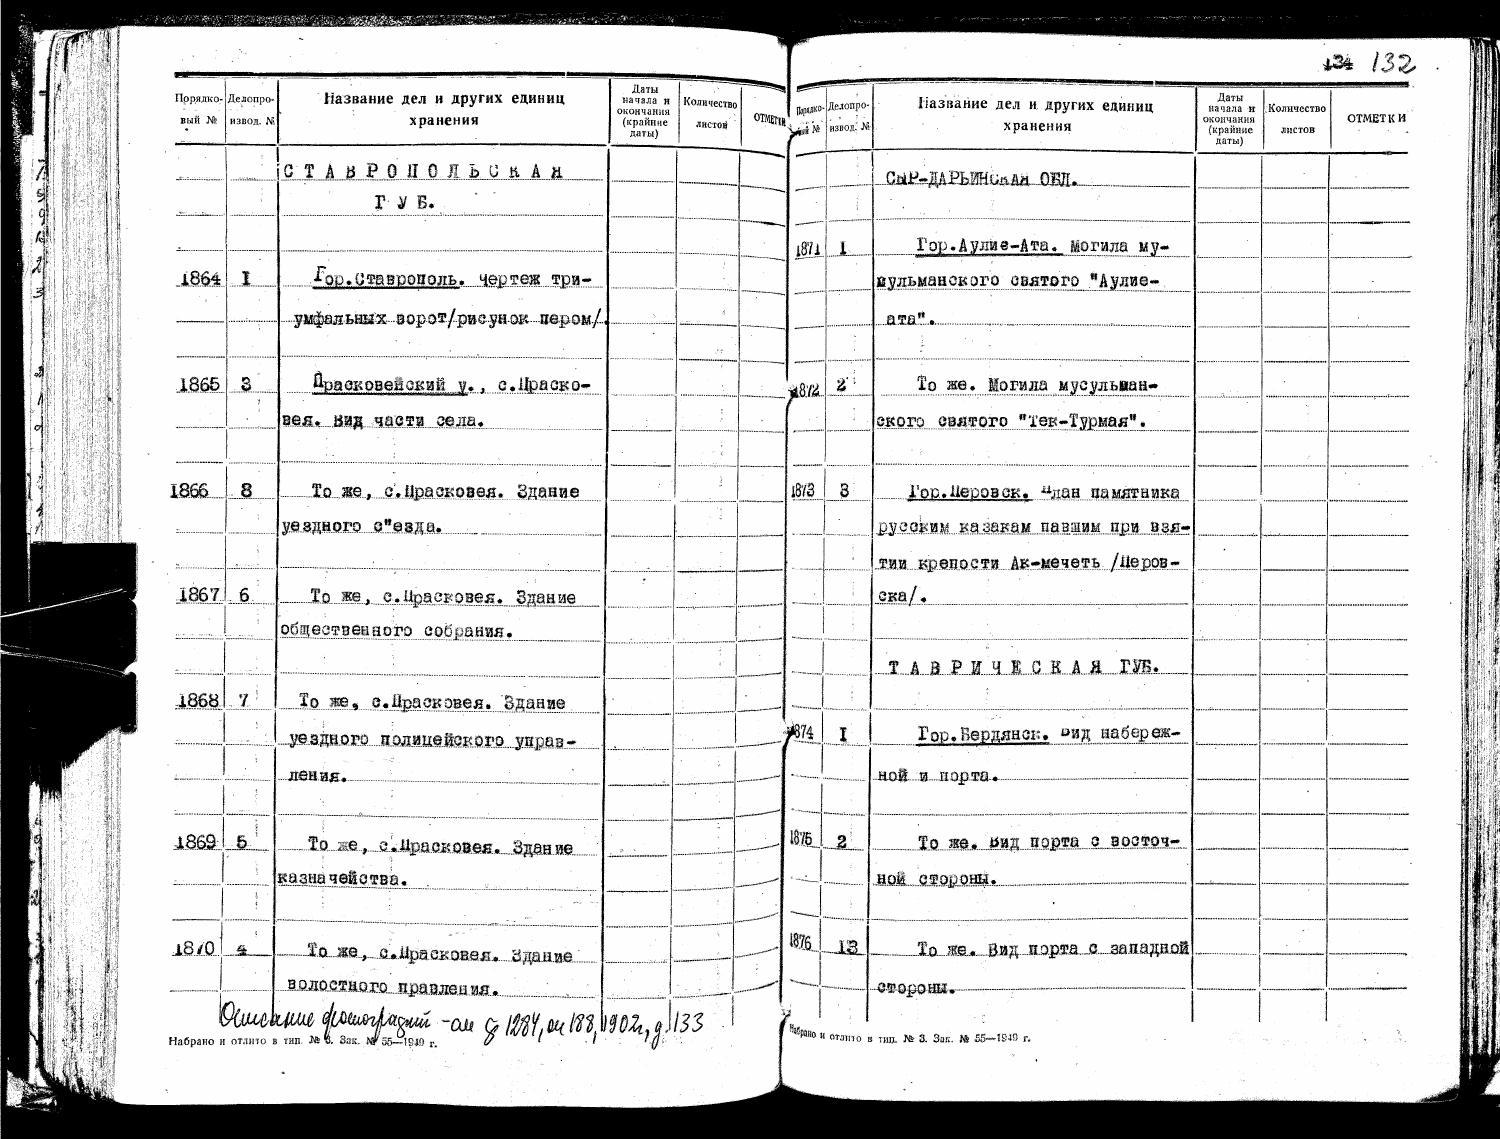 134 132
Порядко-
вый №
Делопро-
извод. №
Название дел и других единиц
хранения
Даты
начала и
окончания
(крайние
даты)
Количество
листов
ОТМЕТКИ
СТАВРОПОЛЬСКАЯ
ГУБ.
1864 1 Гор.Ставрополь. Чертеж три-
умфальных ворот/рисунок пером/.
1865 3 Прасковейский у., с.Праско-
вея. Вид части села.
1866 8 То же, с.Прасковея. Здание
уездного с"езда.
1867 6 То же, с.Прасковея. Здание
общественного собрания.
1868 7 То же, с.Прасковея. Здание
уездного полицейского управ-
ления.
1869 5 То же, с.Прасковея. Здание
казначейства.
1870 4 То же, с.Прасковея. Здание
волостного правления.
Описание фотографий - см ф 1284, оп 188, 1902г, д. 133
Набрано и отлито в тип. № 3. Зак. № 55—1949 г.
Порядко-
вый №
Делопро-
извод. №
Название дел и других единиц
хранения
Даты
начала и
окончания
(крайние
даты)
Количество
листов
ОТМЕТКИ
СЫР-ДАРЬИНСКАЯ ОБЛ.
1871 1 Гор.Аулие-Ата. Могила му-
сульманского святого "Аулие-
ата".
1872 2 То же. Могила мусульман-
ского святого "Тек-Турмая".
1873 3 Гор.Перовск. План памятника
русским казакам павшим при взя-
тии крепости Ак-мечеть /Перов-
ска/.
ТАВРИЧЕСКАЯ ГУБ.
1874 1 Гор.Бердянск. Вид набереж-
ной и порта.
1875 2 То же. Вид порта с восточ-
ной стороны.
1876 13 То же. Вид порта с западной
стороны.
Набрано и отлито в тип. № 3. Зак. № 55—1949 г.